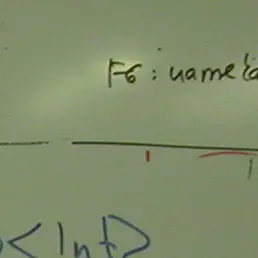 F6: name
<Int>